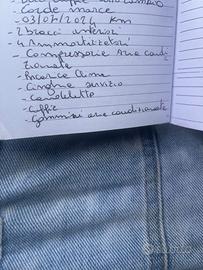 - Corde marce
- 03/07/2024 KM
- 2 bracci inferiori
- 4 Ammortizzatori
- Compressore Aria condi
zionata
- Ricarica Clima
- Cinghia servizio
- Candelette
- Cuffie
- Gommini aria condizionata